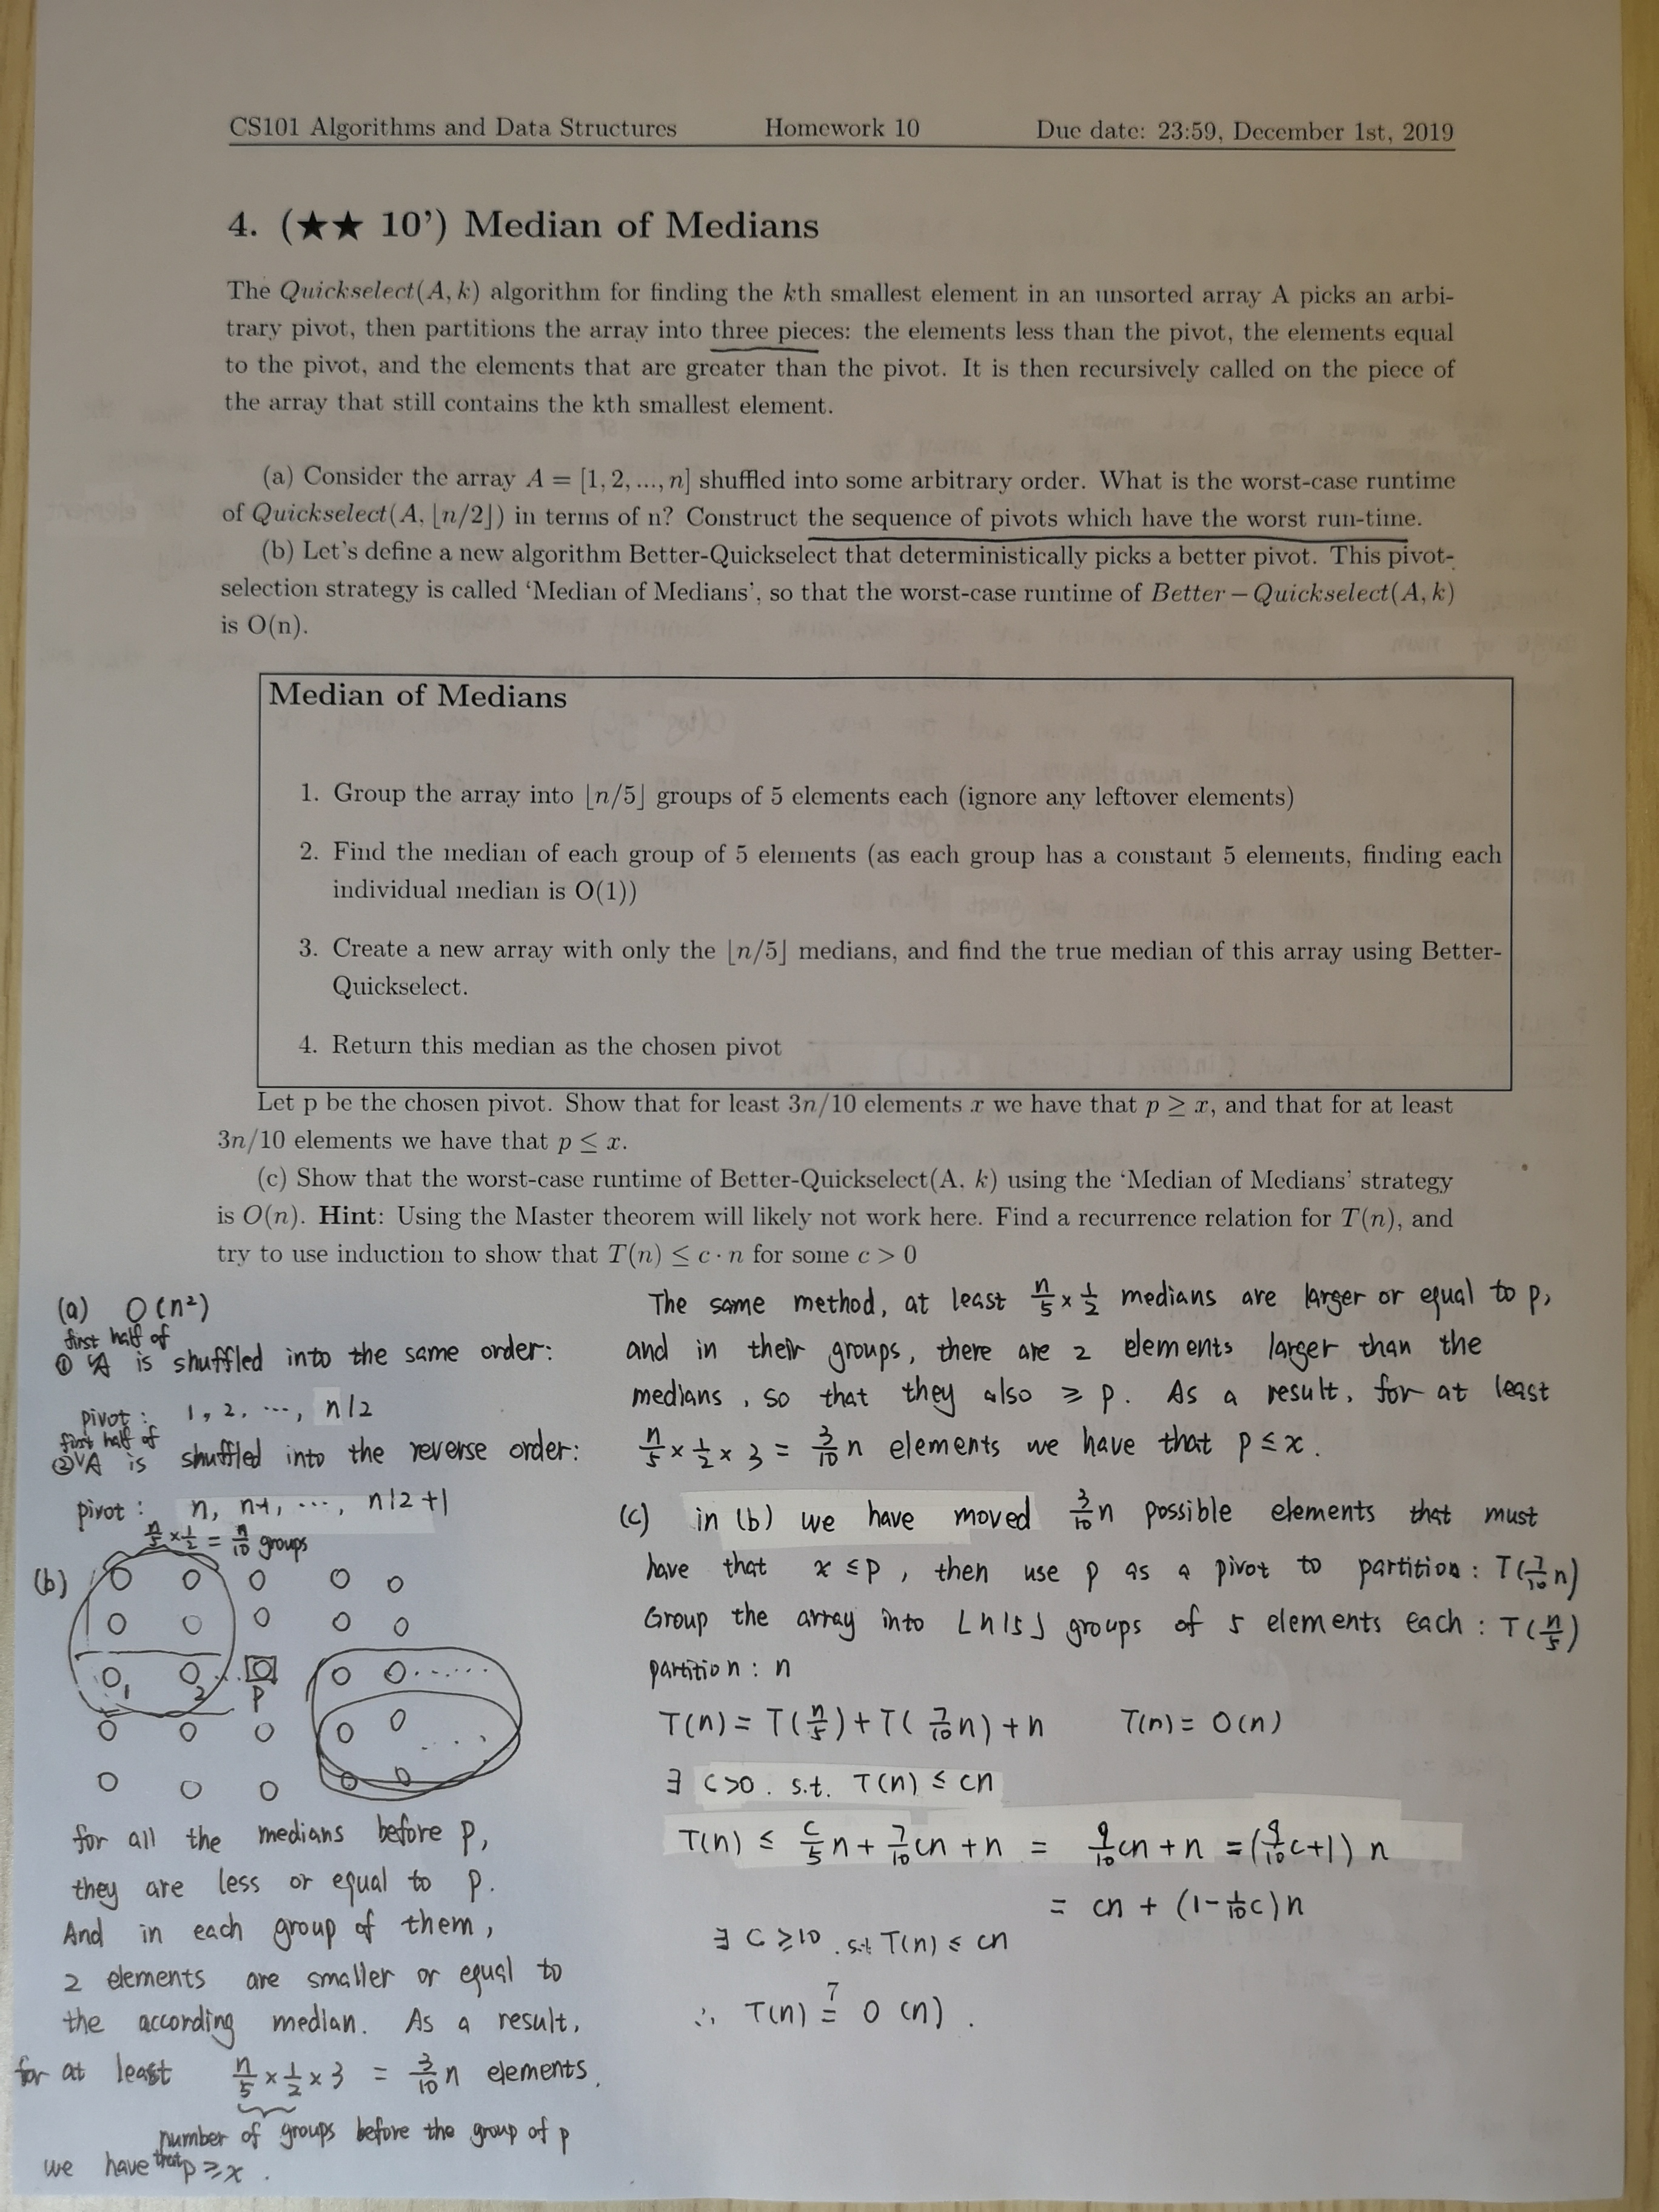 CS101 Algorithms and Data Structures Homework 10 Due date: 23:59, December 1st, 2019
4. (★★ 10') Median of Medians
The Quickselect(A, k) algorithm for finding the kth smallest element in an unsorted array A picks an arbi-
trary pivot, then partitions the array into three pieces: the elements less than the pivot, the elements equal
to the pivot, and the elements that are greater than the pivot. It is then recursively called on the piece of
the array that still contains the kth smallest element.
(a) Consider the array A = [1, 2, ..., n] shuffled into some arbitrary order. What is the worst-case runtime
of Quickselect(A, ⌊n/2⌋) in terms of n? Construct the sequence of pivots which have the worst run-time.
(b) Let's define a new algorithm Better-Quickselect that deterministically picks a better pivot. This pivot-
selection strategy is called 'Median of Medians', so that the worst-case runtime of Better − Quickselect(A, k)
is O(n).
Median of Medians
1. Group the array into ⌊n/5⌋ groups of 5 elements each (ignore any leftover elements)
2. Find the median of each group of 5 elements (as each group has a constant 5 elements, finding each
individual median is O(1))
3. Create a new array with only the ⌊n/5⌋ medians, and find the true median of this array using Better-
Quickselect.
4. Return this median as the chosen pivot
Let p be the chosen pivot. Show that for least 3n/10 elements x we have that p ≥ x, and that for at least
3n/10 elements we have that p ≤ x.
(c) Show that the worst-case runtime of Better-Quickselect(A, k) using the 'Median of Medians' strategy
is O(n). Hint: Using the Master theorem will likely not work here. Find a recurrence relation for T(n), and
try to use induction to show that T(n) ≤ c · n for some c > 0
(a) O(n²)
first half of
① A is shuffled into the same order:
pivot: 1, 2, ···, n/2
first half of
② A is shuffled into the reverse order:
pivot: n, n-1, ···, n/2+1
n/5 × 1/2 = n/10 groups
(b)
1 2 P
for all the medians before p,
they are less or equal to p.
And in each group of them,
2 elements are smaller or equal to
the according median. As a result,
for at least n/5 × 1/2 × 3 = 3/10 n elements,
number of groups before the group of p
we have that p ≥ x.
The same method, at least n/5 × 1/2 medians are larger or equal to p,
and in their groups, there are 2 elements larger than the
medians, so that they also ≥ p. As a result, for at least
n/5 × 1/2 × 3 = 3/10 n elements we have that p ≤ x.
(c) in (b) we have moved 3/10 n possible elements that must
have that x ≤ p, then use p as a pivot to partition: T(7/10 n)
Group the array into ⌊n/5⌋ groups of 5 elements each: T(n/5)
partition: n
T(n) = T(n/5) + T(7/10 n) + n T(n) = O(n)
∃ c>0. s.t. T(n) ≤ cn
T(n) ≤ c/5 n + 7/10 cn + n = 9/10 cn + n = (9/10 c+1) n
= cn + (1-1/10 c) n
∃ c ≥ 10. s.t. T(n) ≤ cn
7
∴ T(n) = O(n).